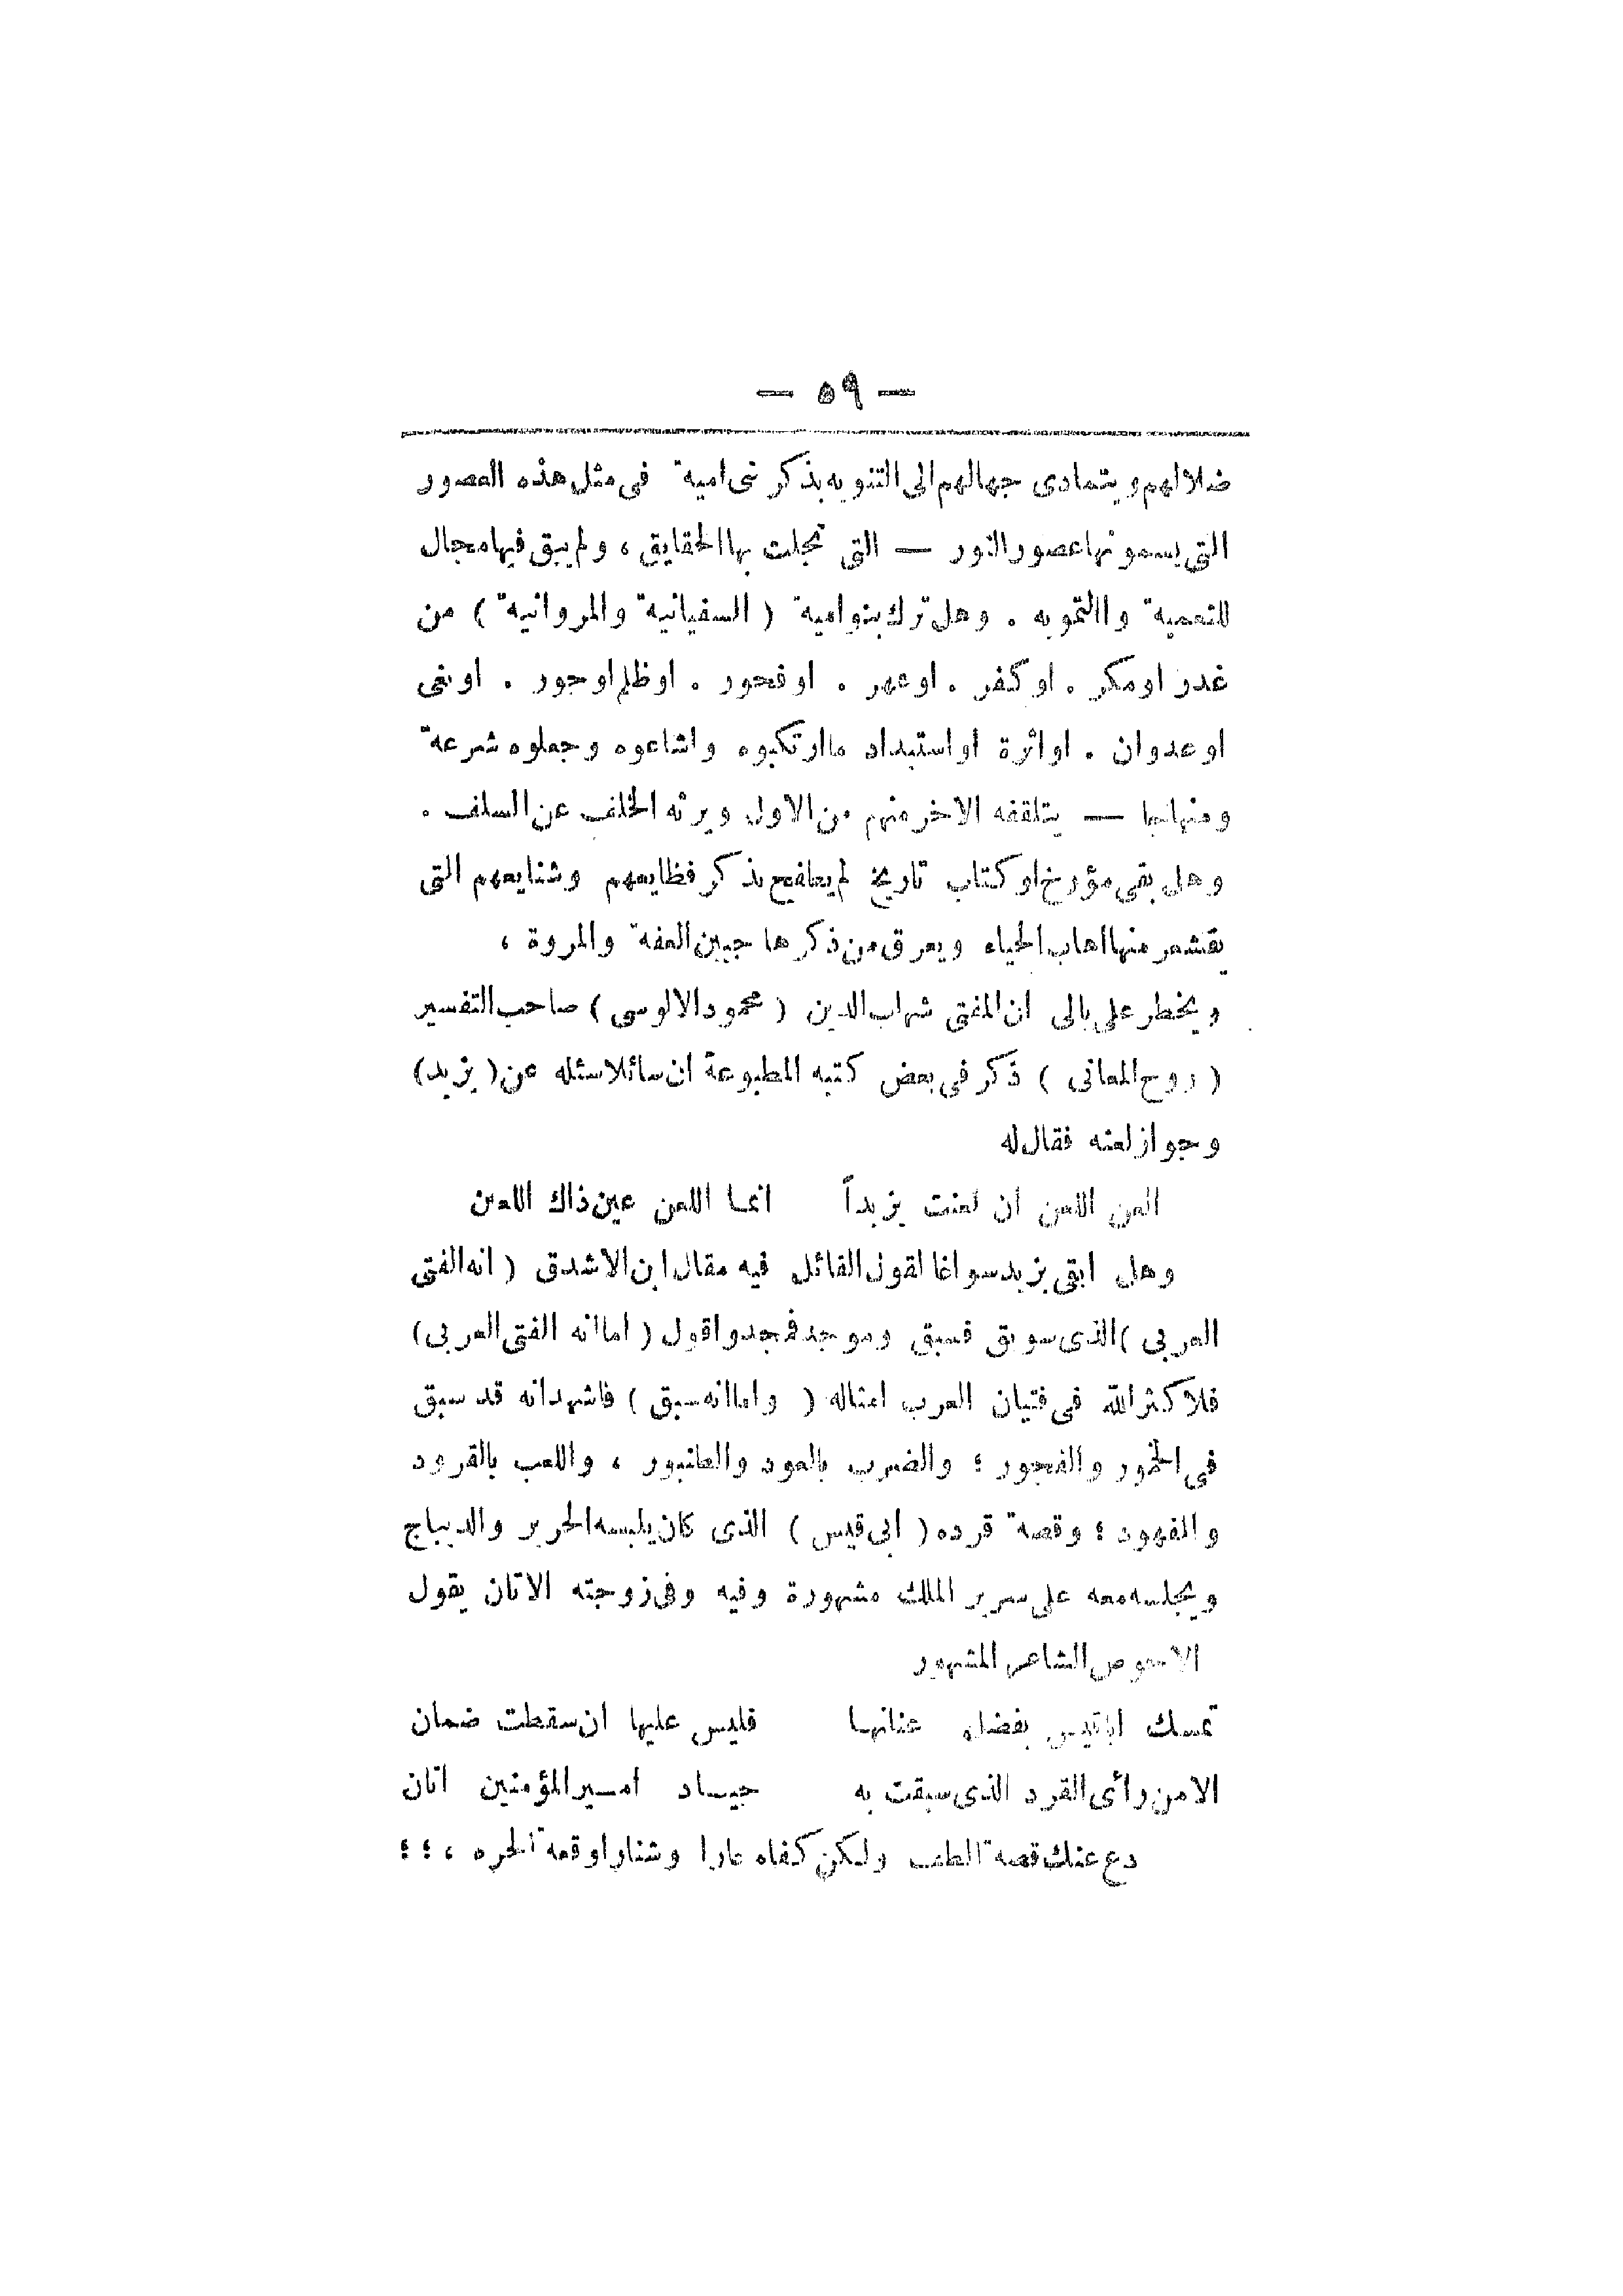 — ٥٩ —
ضلالهم ويتمادى جهالهم الى التنويه بذكر بنى امية في مثل هذه العصور
التي يسمونها عصور النور — التي تجلت بها الحقايق ، ولم يبق فيها مجال
للتعمية واالتمويه . وهل ترك بنو امية ( السفيانية والمروانية ) من
غدر او مكر . او كفر . او عهر . او فجور . او ظلم او جور . او بغى
او عدوان . او اثرة او استبداد ما ارتكبوه واشاعوه وجعلوه شرعة
ومنهاجا — يتلقفه الاخر منهم من الاول ويرثه الخلف عن السلف .
وهل بقى مؤرخ او كتاب تاريخ لم يطفح بذكر فظايعهم وشنايعهم التي
يقشعر منها اهاب الحياء ويعرق من ذكرها جبين العفة والمروة ،
ويخطر على بالى ان المفتى شهاب الدين ( محمود الالوسى ) صاحب التفسير
( روح المعانى ) ذكر في بعض كتبه المطبوعة ان سائلا سئله عن ( يزيد )
وجواز لعنه فقال له
العن اللعن ان لعنت يزيداً انما اللعن عين ذاك اللعين
وهل ابقى يزيد سواغا لقول القائل فيه مقال ابن الاشدق ( انه الفتى
العربى ) الذى سوبق فسبق وموجد فمجد واقول ( اما انه الفتى العربى )
فلا كثر الله في فتيان العرب امثاله ( واما انه سبق ) فاشهد انه قد سبق
في الخمور والفجور ؛ والضرب بالعود والطنبور ، واللعب بالقرود
والفهود ؛ وقصة قرده ( ابى قيس ) الذى كان يلبسه الحرير والديباج
ويجلسه معه على سرير الملك مشهورة وفيه وفى زوجته الاتان يقول
الاحوص الشاعر المشهور
تمسك ابا قيس بفضل عنانها فليس عليها ان سقطت ضمان
الا من رأى القرد الذى سبقت به جياد امير المؤمنين اتان
دع عنك قصة الطف ولكن كفاه عارا وشنارا وقعة الحره ، ؛ ؛